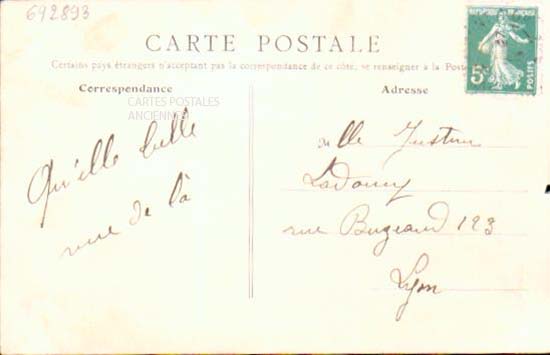 692893
CARTE POSTALE
Certains pays étrangers n'acceptant pas la correspondance de ce côté, se renseigner à la Poste
Correspondance
Adresse
CARTES POSTALES
ANCIENNES
Qu'elle belle
vue de là
Mlle Justine
rue Bugeaud 123
Lyon
RÉPUBLIQUE FRANÇAISE
5c
POSTES